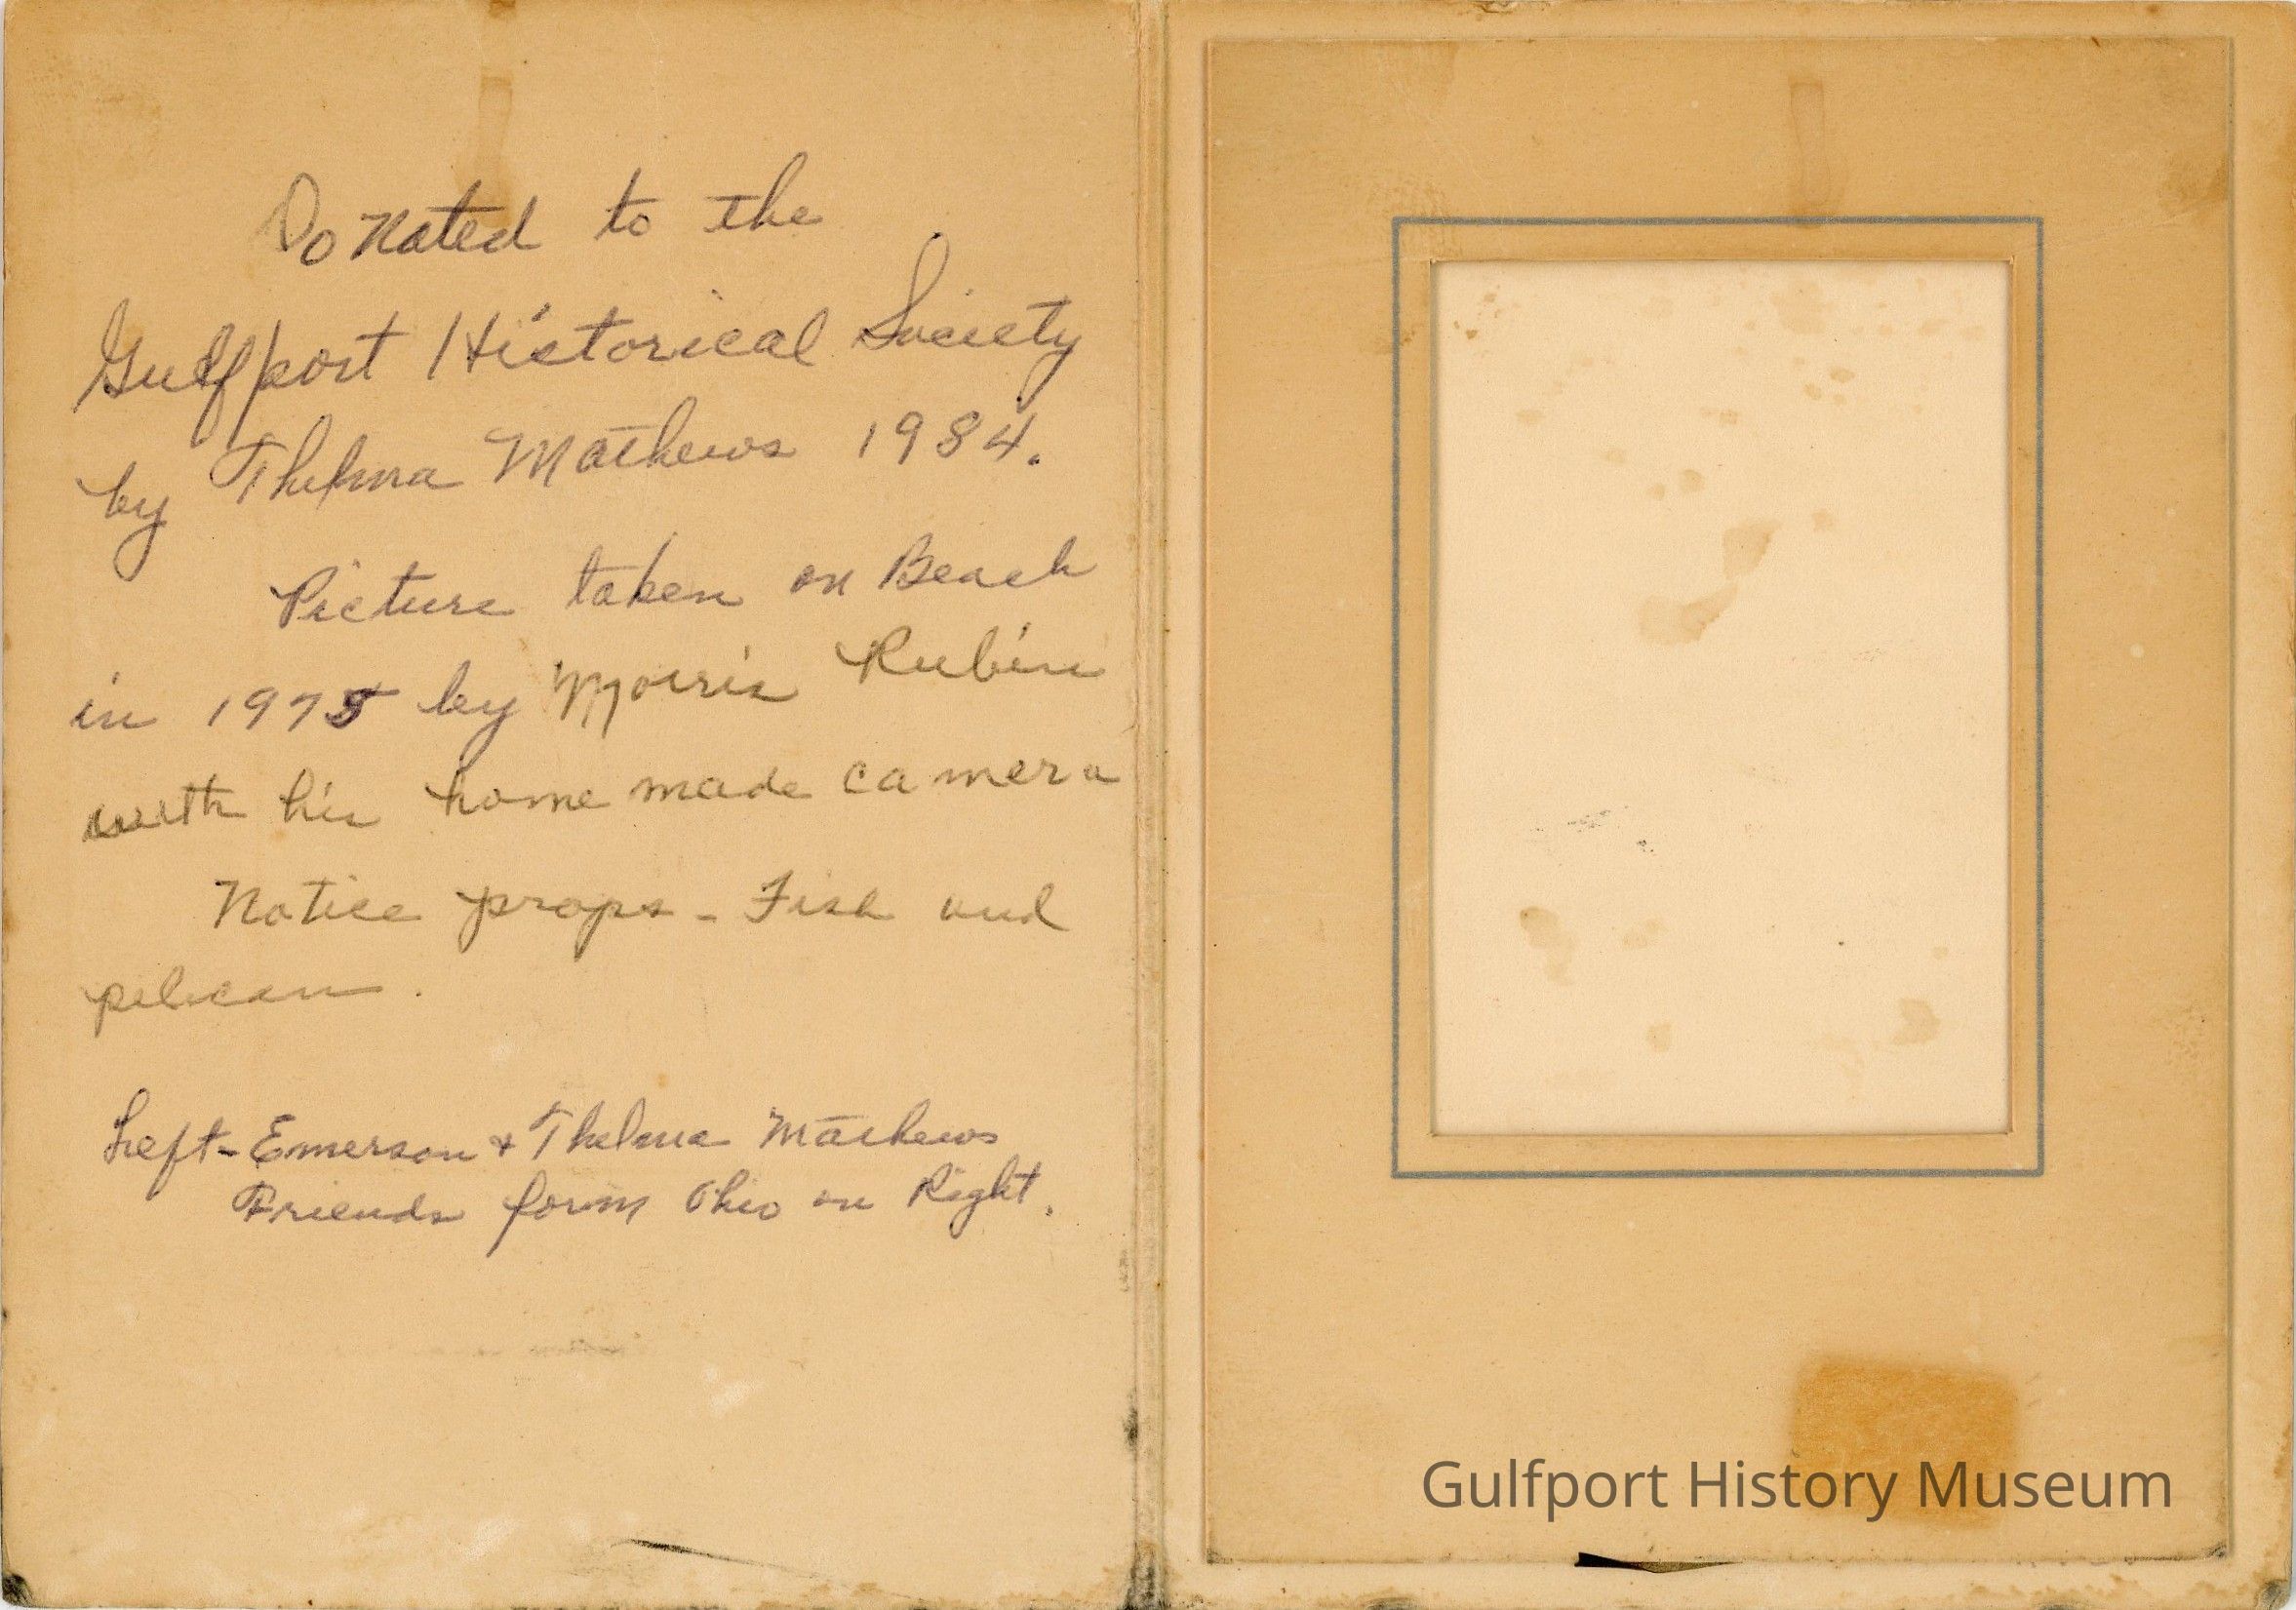 Donated to the
Gulfport Historical Society
by Thelma Mathews 1984.
Picture taken on Beach
in 1975 by Morris Rubin
with his home made camera
Notice props - Fish and
pelican.
Left - Emerson & Thelma Mathews
Friends form Ohio on Right.
Gulfport History Museum